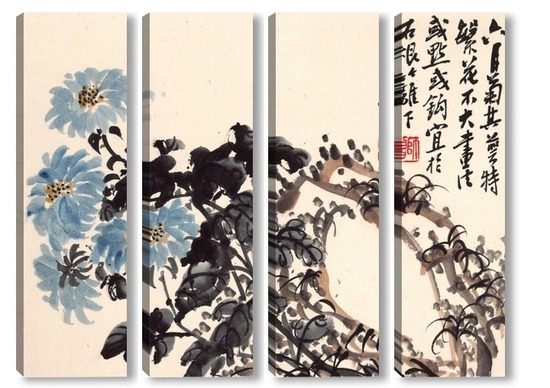 六月菊其葉特
繁花不大畫法
或點或鈎宜於
石根籬下